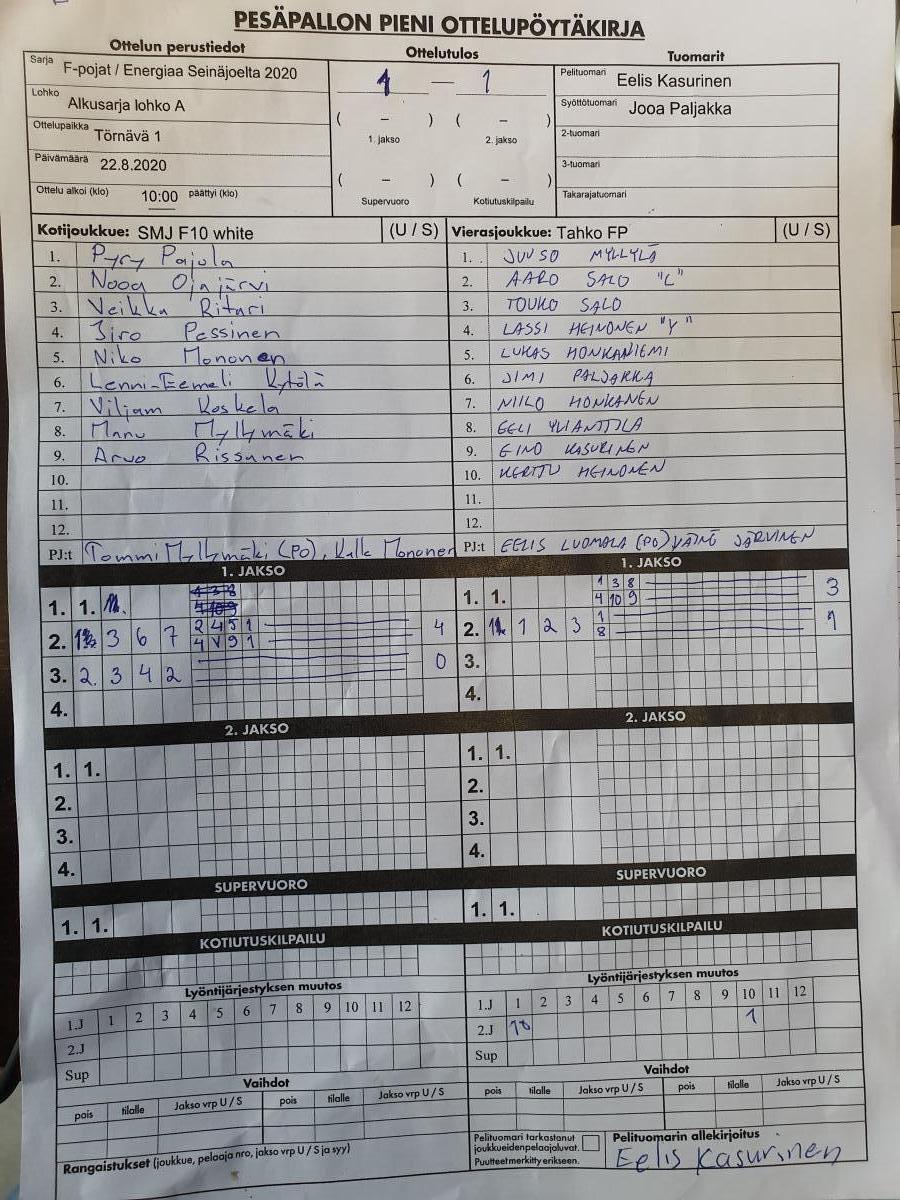 PESÄPALLON PIENI OTTELUPÖYTÄKIRJA
Ottelun perustiedot
Sarja F-pojat / Energiaa Seinäjoelta 2020
Lohko Alkusarja lohko A
Ottelupaikka Törnävä 1
Päivämäärä 22.8.2020
Ottelu alkoi (klo) 10:00 päättyi (klo)
Ottelutulos
1 — 1
( – ) ( – )
1. jakso 2. jakso
( – ) ( – )
Supervuoro Kotiutuskilpailu
Tuomarit
Pelituomari Eelis Kasurinen
Syöttötuomari Jooa Paljakka
2-tuomari
3-tuomari
Takarajatuomari
Kotijoukkue: SMJ F10 white (U / S)
1. Pyry Pajula
2. Nooa Ojajärvi
3. Veikka Ritari
4. Jiro Pessinen
5. Niko Mononen
6. Lenni-Eemeli Kytölä
7. Viljam Koskela
8. Manu Myllymäki
9. Arvo Rissanen
10.
11.
12.
PJ:t Tommi Myllymäki (PO), Kalle Mononen
Vierasjoukkue: Tahko FP (U / S)
1. JUUSO MYLLYLÄ
2. AARO SALO "L"
3. TOUKO SALO
4. LASSI HEINONEN "Y"
5. LUKAS HONKANIEMI
6. JIMI PALJAKKA
7. NIILO HONKANEN
8. EELI YLIANTTILA
9. EINO KASURINEN
10. KERTTU HEINONEN
11.
12.
PJ:t EELIS LUOMALA (PO) VÄINÖ JÄRVINEN
1. JAKSO
1. 1.
2. 3 6 7 2 4 5 1 4
4 V 9 1
3. 2. 3 4 2 0
4.
1. JAKSO
1. 1. 1 3 8 3
4 10 9
2. 1 2 3 1 1
8
3.
4.
2. JAKSO
1. 1.
2.
3.
4.
2. JAKSO
1. 1.
2.
3.
4.
SUPERVUORO
1. 1.
SUPERVUORO
1. 1.
KOTIUTUSKILPAILU
KOTIUTUSKILPAILU
Lyöntijärjestyksen muutos
1.J 1 2 3 4 5 6 7 8 9 10 11 12
2.J
Sup
Lyöntijärjestyksen muutos
1.J 1 2 3 4 5 6 7 8 9 10 11 12
2.J 10 1
Sup
Vaihdot
pois tilalle Jakso vrp U / S pois tilalle Jakso vrp U / S
Vaihdot
pois tilalle Jakso vrp U / S pois tilalle Jakso vrp U / S
Rangaistukset (joukkue, pelaaja nro, jakso vrp U / S ja syy)
Pelituomari tarkastanut
joukkueiden pelaajaluvat.
Puutteet merkitty erikseen.
Pelituomarin allekirjoitus
Eelis Kasurinen